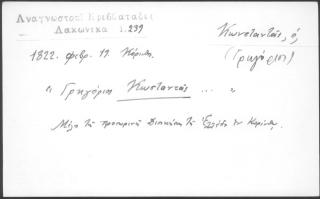 Αναγνωστου Κρεββατᾶδες
Λακωνικα Ι. 239
Κωνσταντᾶς, ὁ
(Γρηγόριος)
1822. Φεβρ. 19. Κόρινθ.
" Γρηγόριος Κωνσταντᾶς ... "
Μέλη τῆς προσωρινῆς Διοικήσεως τῆς Ἑλλάδος ἐν Κορίνθῳ.